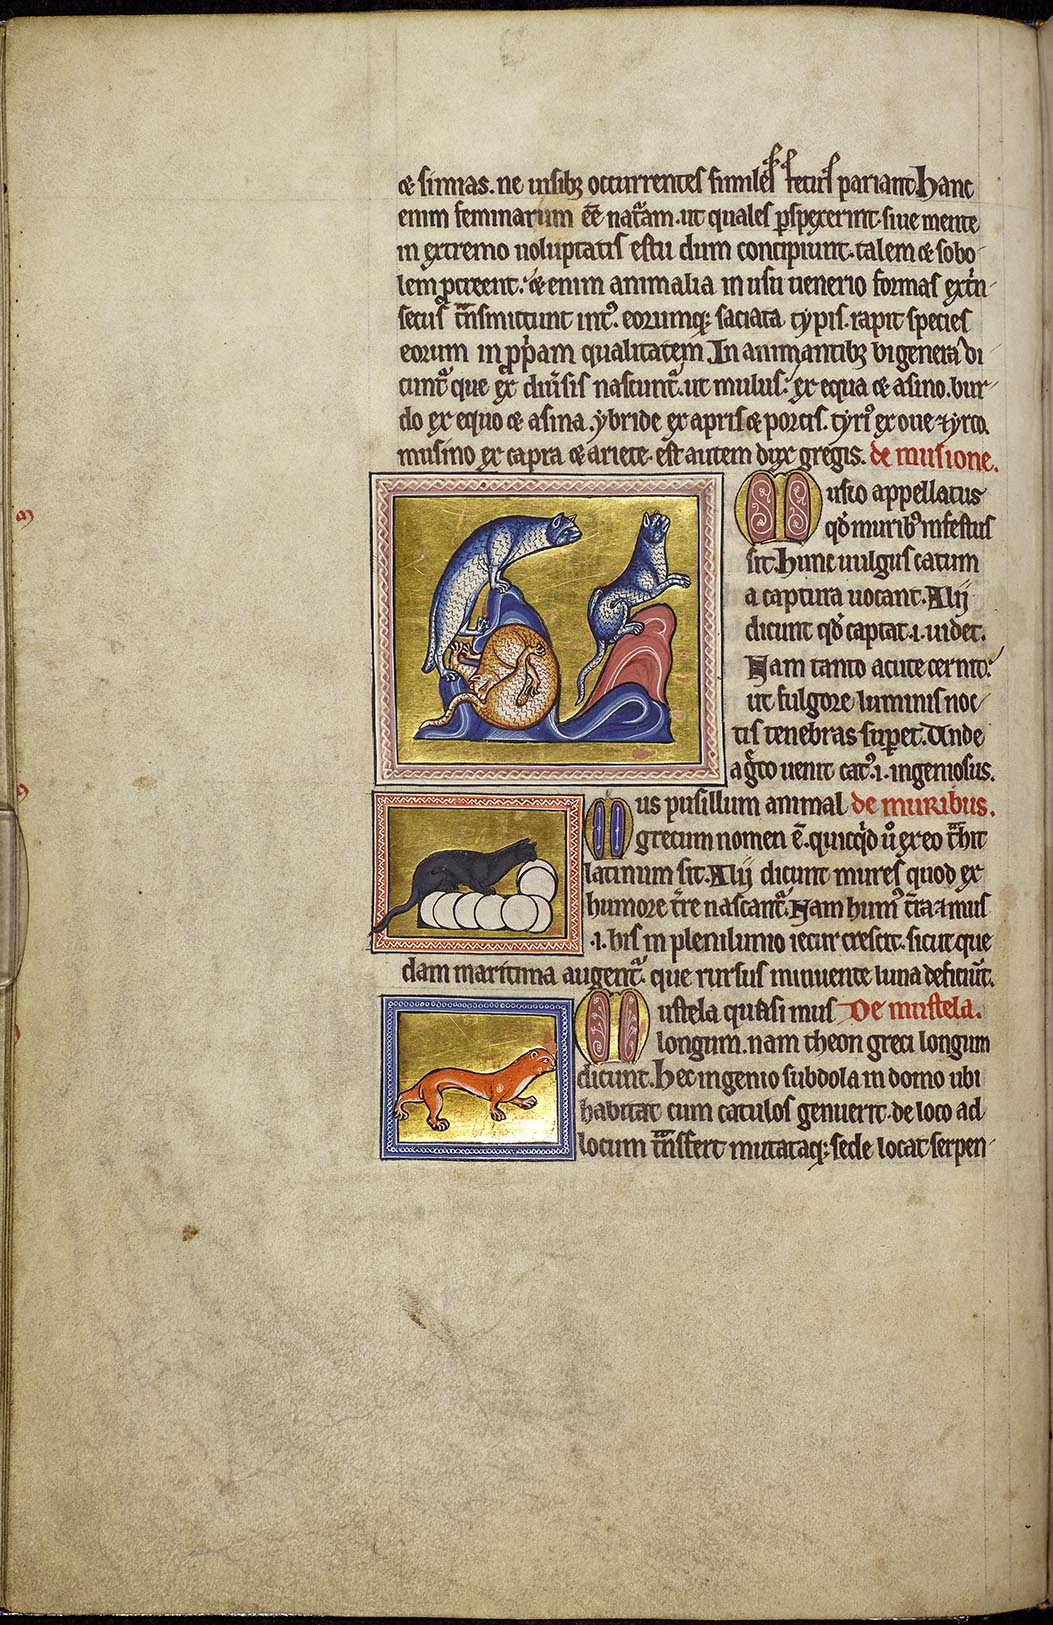 ⁊ simias. ne uisibꝫ occurrentes similes fetus pariant. Hanc
enim feminarum ee᷑ nat᷑am. ut quales ꝑspexerint. siue mente
in extremo uoluptatis estu dum concipiunt. talem ⁊ sobo-
lem ꝓcreent. ⁊ enim animalia in usu uenerio formas ext᷑in-
secus t᷑nsmittunt int᷒. eorumqꝫ saciata typis. rapit species
eorum in ꝓp᷑am qualitatem. In animantibꝫ bigenera di
cunt᷑ que ex diu᷑sis nascunt᷑. ut mulus. ex equa ⁊ asino. bur-
do ex equo ⁊ asina. ybride ex apris ⁊ porcis. tyri᷒ ex oue ⁊ yrco.
musino ex capra ⁊ ariete. est autem dux gregis. de musione.
Musio appellatus
qd̕ murib᷒ infestus
sit. Hunc uulgus catum
a captura uocant. Alij
dicunt qd̕ captat .i. uidet.
Nam tanto acute cernit.
ut fulgore luminis noc-
tis tenebras suꝑet. Unde
a g᷑co uenit cat᷒ .i. ingeniosus.
Mus pusillum animal de muribus.
grecum nomen ē. quicq̕d u᷑o ex eo t᷑hit
latinum fit. Alij dicunt mures quod ex
humore t᷑re nascant᷑. Nam hum᷒ t᷑ra ⁊ mus
.i. his in plenilunio iecur crescit. sicut que
dam maritima augent᷑. que rursus minuente luna deficiūt.
Mustela quasi mus De mustela.
longum. nam theon greci longum
dicunt. Hec ingenio subdola in domo ubi
habitat cum catulos genuerit. de loco ad
locum t᷑nsfert mutataqꝫ sede locat serpen-